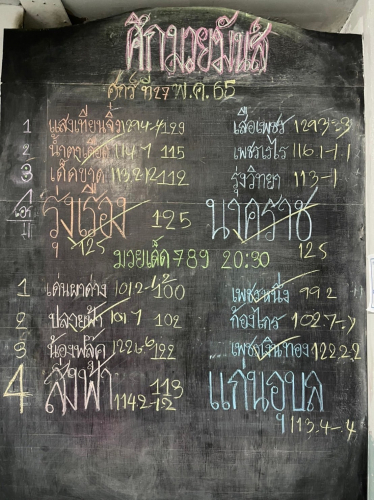 ศึกมวยมันส์
ศุกร์ ที่ 27 พ.ค. 65
1 แสงเทียนจิ๋ว 129 เสือเพชร 129.3-.3
2 น้ำตาเดือด 114.7 115 เพชรเรไร 116.1-1.1
3 เด็ดขาด 112 รุ่งวิทยา 113-1
4 เอก รุ่งเรือง 125 นงคราช
125 125
มวยเด็ด 789 20:30
1 เด่นผาด่าง 101.2 100 เพชรหนึ่ง 99.2
2 ปลายฟ้า 101.7 102 ก้องไกร 102.7-.7
3 น้องฟลุ๊ค 122.6 122 เพชรเงินทอง 122.2-.2
4 สิงฟ้า 113 แก่นอุบล
114.2-1.2 113.4-.4